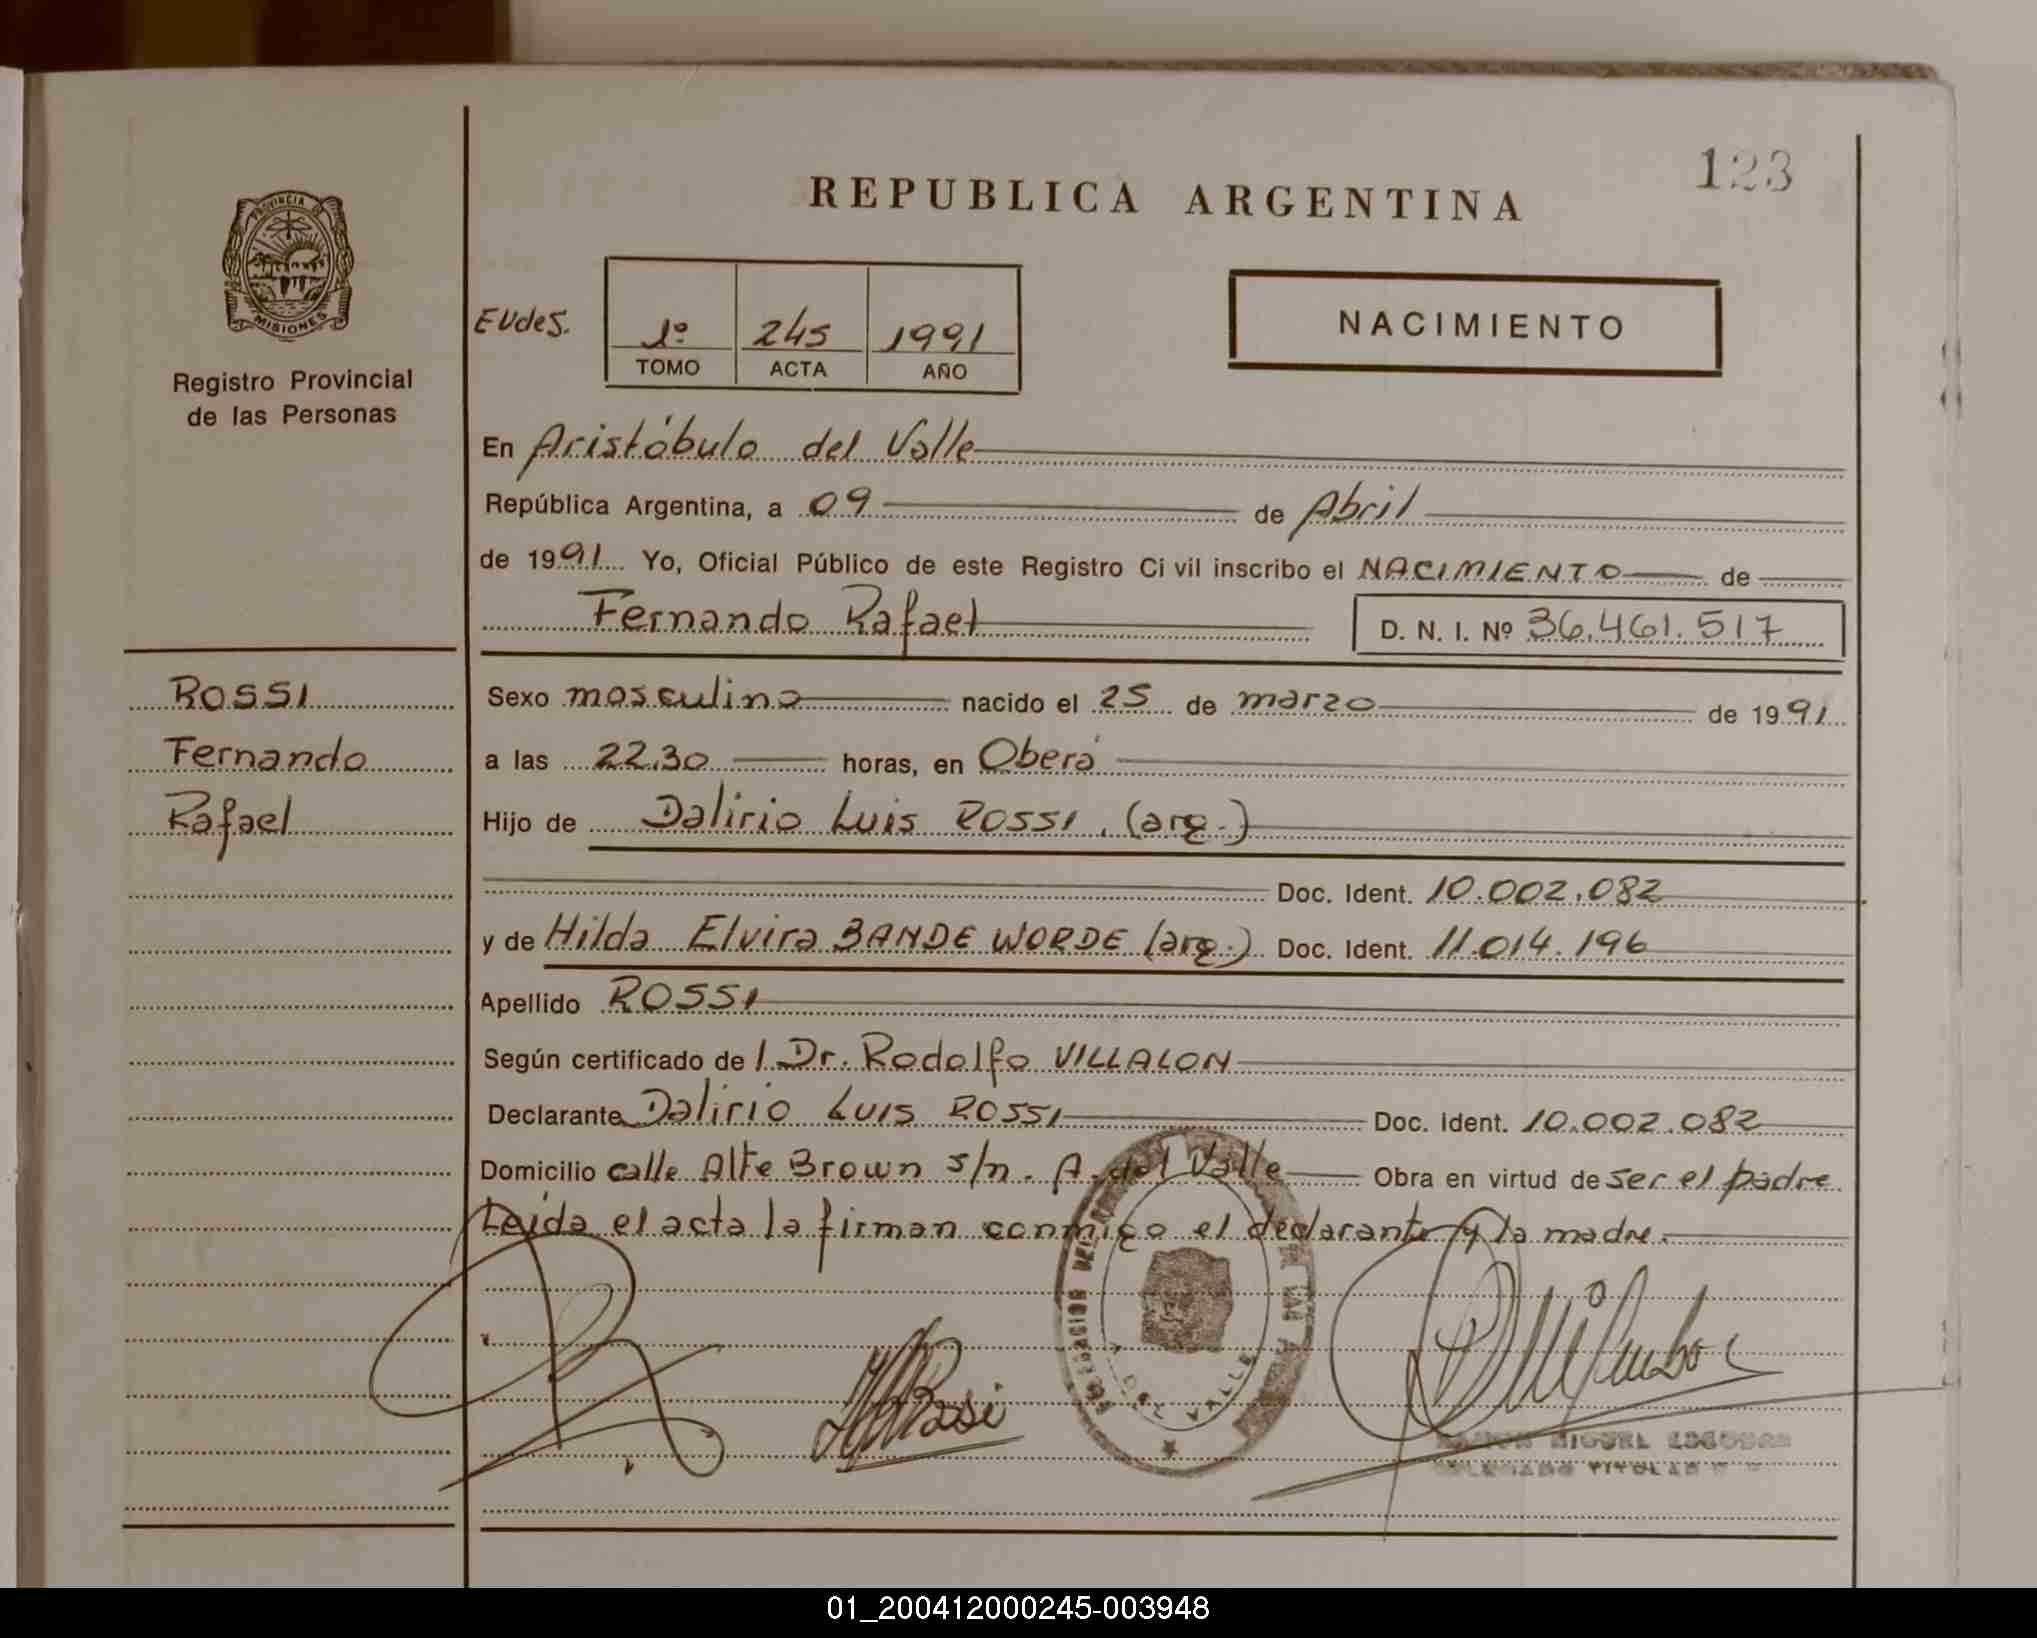 123
REPUBLICA ARGENTINA
PROVINCIA DE
MISIONES
Registro Provincial
de las Personas
EUdes.
1º 245 1991
TOMO ACTA AÑO
NACIMIENTO
En Aristóbulo del Valle
República Argentina, a 09 de Abril
de 1991 Yo, Oficial Público de este Registro Civil inscribo el NACIMIENTO de
Fernando Rafael D. N. I. Nº 36.461.517
ROSSI
Fernando
Rafael
Sexo masculino nacido el 25 de marzo de 1991
a las 22.30 horas, en Oberá
Hijo de Dalirio Luis ROSSI, (arg.)
Doc. Ident. 10.002.082
y de Hilda Elvira BANDE WORDE (arg.) Doc. Ident. 11.014.196
Apellido ROSSI
Según certificado de l Dr. Rodolfo VILLALON
Declarante Dalirio Luis ROSSI Doc. Ident. 10.002.082
Domicilio calle Alte Brown s/n. A. del Valle Obra en virtud de ser el padre
Leída el acta la firman conmigo el declarante y la madre.
DEL VALLE
MIGUEL ESCOBAR
DELEGADO TITULAR
01_200412000245-003948